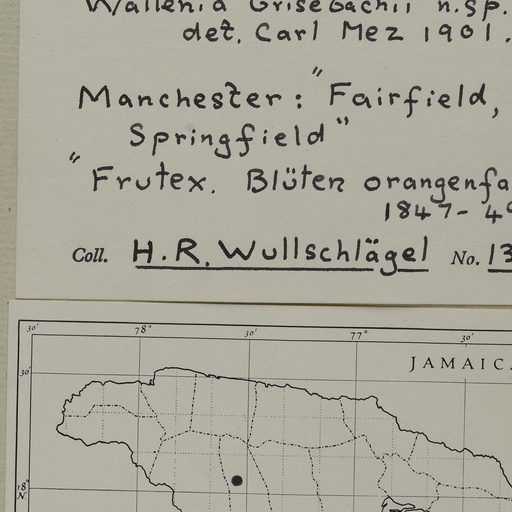 Wallenia Grisebachii n.sp.
det. Carl Mez 1901.
Manchester: "Fairfield,
Springfield"
"Frutex. Blüten orangenfa
1847-49
Coll. H.R. Wullschlägel No. 13
30' 78° 30' 77° 30'
JAMAICA
30'
18° N.